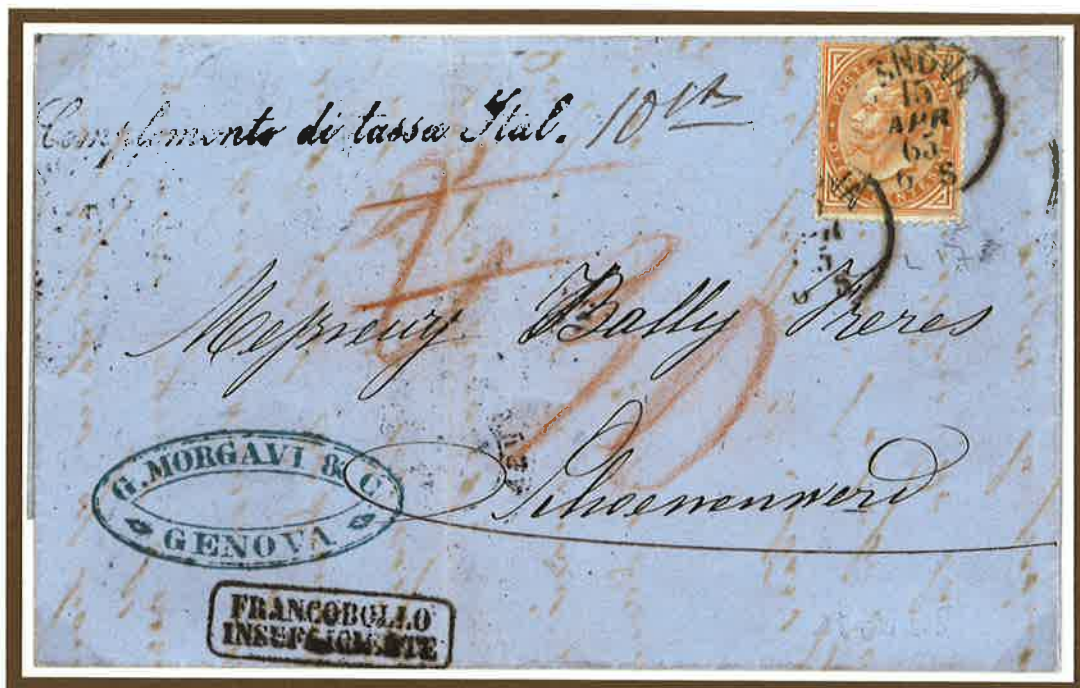 Complemento di tassa Ital. 10 cts
POSTE
ENOVA
15
APR
65
6 S
30
Messieurs Bally Freres
Schoenenwerd
G. MORGAVI & C
GENOVA
FRANCOBOLLO
INSUFFICIENTE